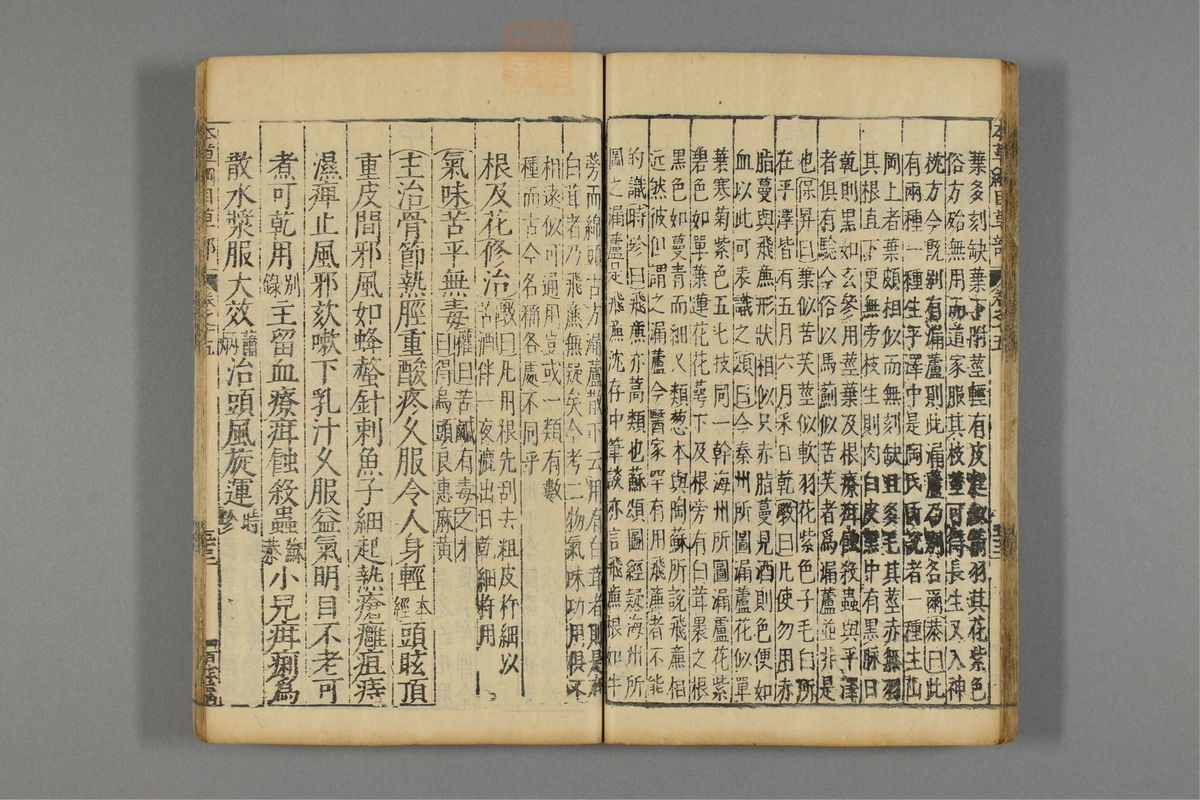 本草綱目草部 卷之十五 五十三
葉多刻缺葉下附莖輕有皮起似箭羽其花紫色
俗方殆無用而道家服其枝莖可得長生又入神
枕方今既別有漏蘆則此漏蘆乃別名爾恭曰此
有兩種一種生平澤中是陶氏所說者一種生山
岡上者葉頗相似而無刻缺且多毛其莖赤無羽
其根直下更無旁枝生則肉白皮黑中有黑脉日
乾則黑如玄參用莖葉及根療疳蝕殺蟲與平澤
者俱有驗今俗以馬薊似苦芺者爲漏蘆並非是
也保昇曰葉似苦芺莖似軟羽花紫色子毛白所
在平澤皆有五月六月采日乾斅曰凡使勿用赤
脂蔓與飛廉形狀相似只赤脂蔓見酒則色便如
血以此可表識之頌曰今秦州所圖漏蘆花似單
葉寒菊紫色五七枝同一幹海州所圖漏蘆花紫
碧色如單葉蓮花花萼下及根旁有白茸裹之根
黑色如蔓青而細又類葱本與陶蘇所說飛廉相
近然彼但謂之漏蘆今醫家罕有用飛廉者不能
的識時珍曰飛廉亦蒿類也蘇頌圖經疑海州所
圖之漏蘆是飛廉沈存中筆談亦言飛廉根如牛
蒡而綿頭古方漏蘆散下云用有白茸者則是有
白茸者乃飛廉無疑矣今考二物氣味功用俱不
相遠似可通用豈或一類有數
種而古今名稱各處不同乎
根及花修治斅曰凡用根先刮去粗皮杵細以
苦酒伴一夜漉出日乾細杵用
氣味苦平無毒權曰苦鹹有毒之才
曰得烏頭良惡麻黃
主治骨節熱脛重酸疼久服令人身輕本經頭眩頂
重皮間邪風如蜂螫針刺魚子細起熱瘡癰疽痔
濕痺止風邪欬嗽下乳汁久服益氣明目不老可
煮可乾用別錄主留血療疳蝕殺蟲蘇恭小兒疳痢爲
散水漿服大效蕭炳治頭風旋運時珍
本草綱目草部 卷之十五 五十三